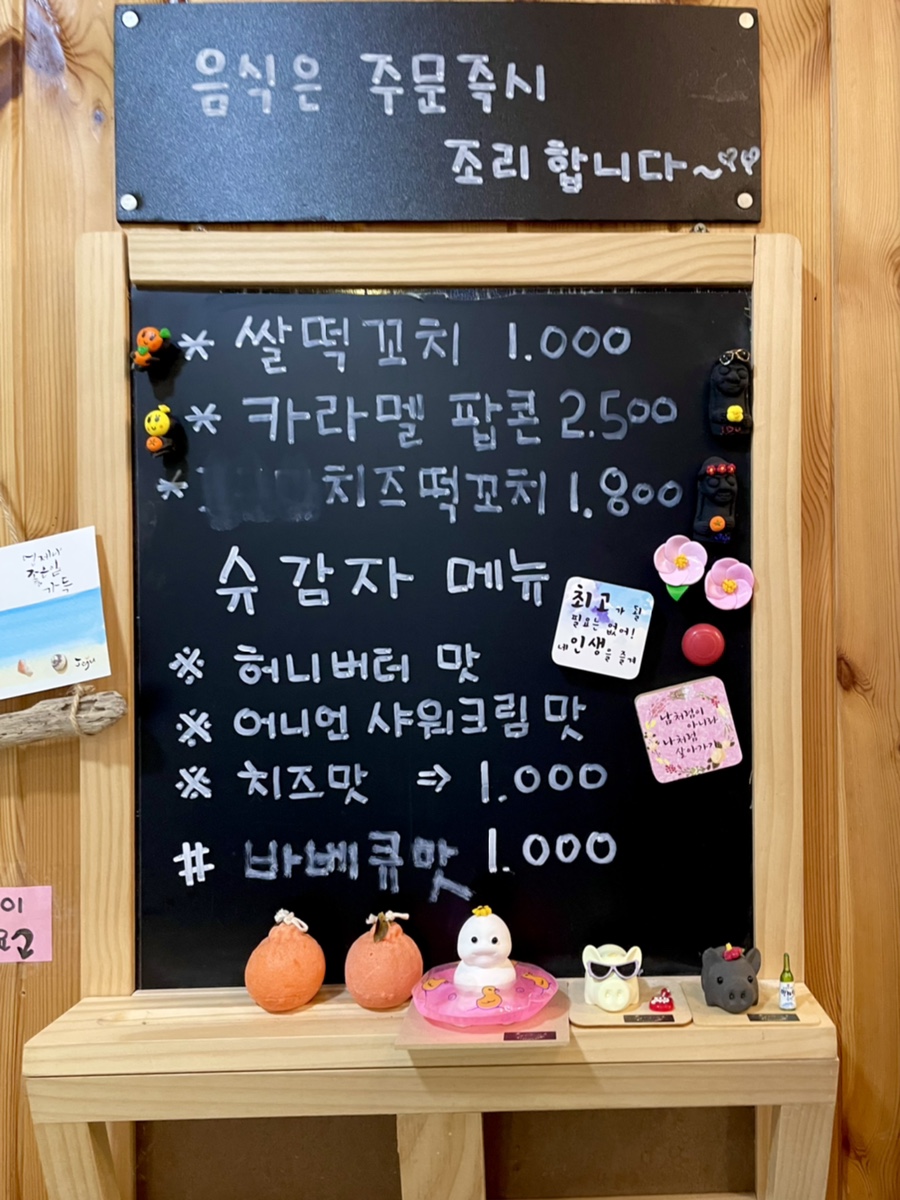 음식은 주문즉시
조리합니다~♡♡
* 쌀떡꼬치 1.000
* 카라멜 팝콘 2.500
* 치즈떡꼬치 1.800
슈감자 메뉴
※ 허니버터 맛
※ 어니언 샤워크림 맛
※ 치즈맛 ⇒ 1.000
# 바베큐맛 1.000
최고가 될
필요는 없어!
네 인생을 즐겨
남처럼이
아니라
나처럼
살아가기
언제나
좋은일
가득
Jeju
이